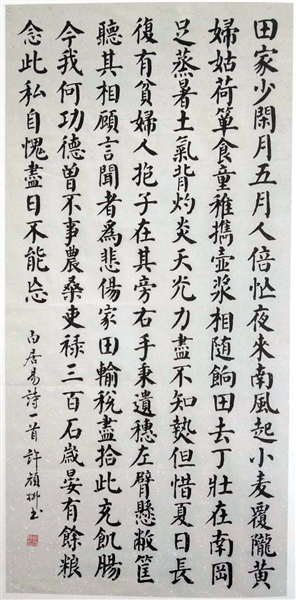 田家少閑月五月人倍忙夜來南風起小麦覆隴黃
婦姑荷簞食童稚攜壺漿相隨餉田去丁壯在南岡
足蒸暑土氣背灼炎天光力盡不知熱但惜夏日長
復有貧婦人抱子在其旁右手秉遺穗左臂懸敝筐
聽其相顧言聞者為悲傷家田輸稅盡拾此充飢腸
今我何功德曾不事農桑吏禄三百石歲晏有餘粮
念此私自愧盡日不能忘
白居易詩一首 許 书